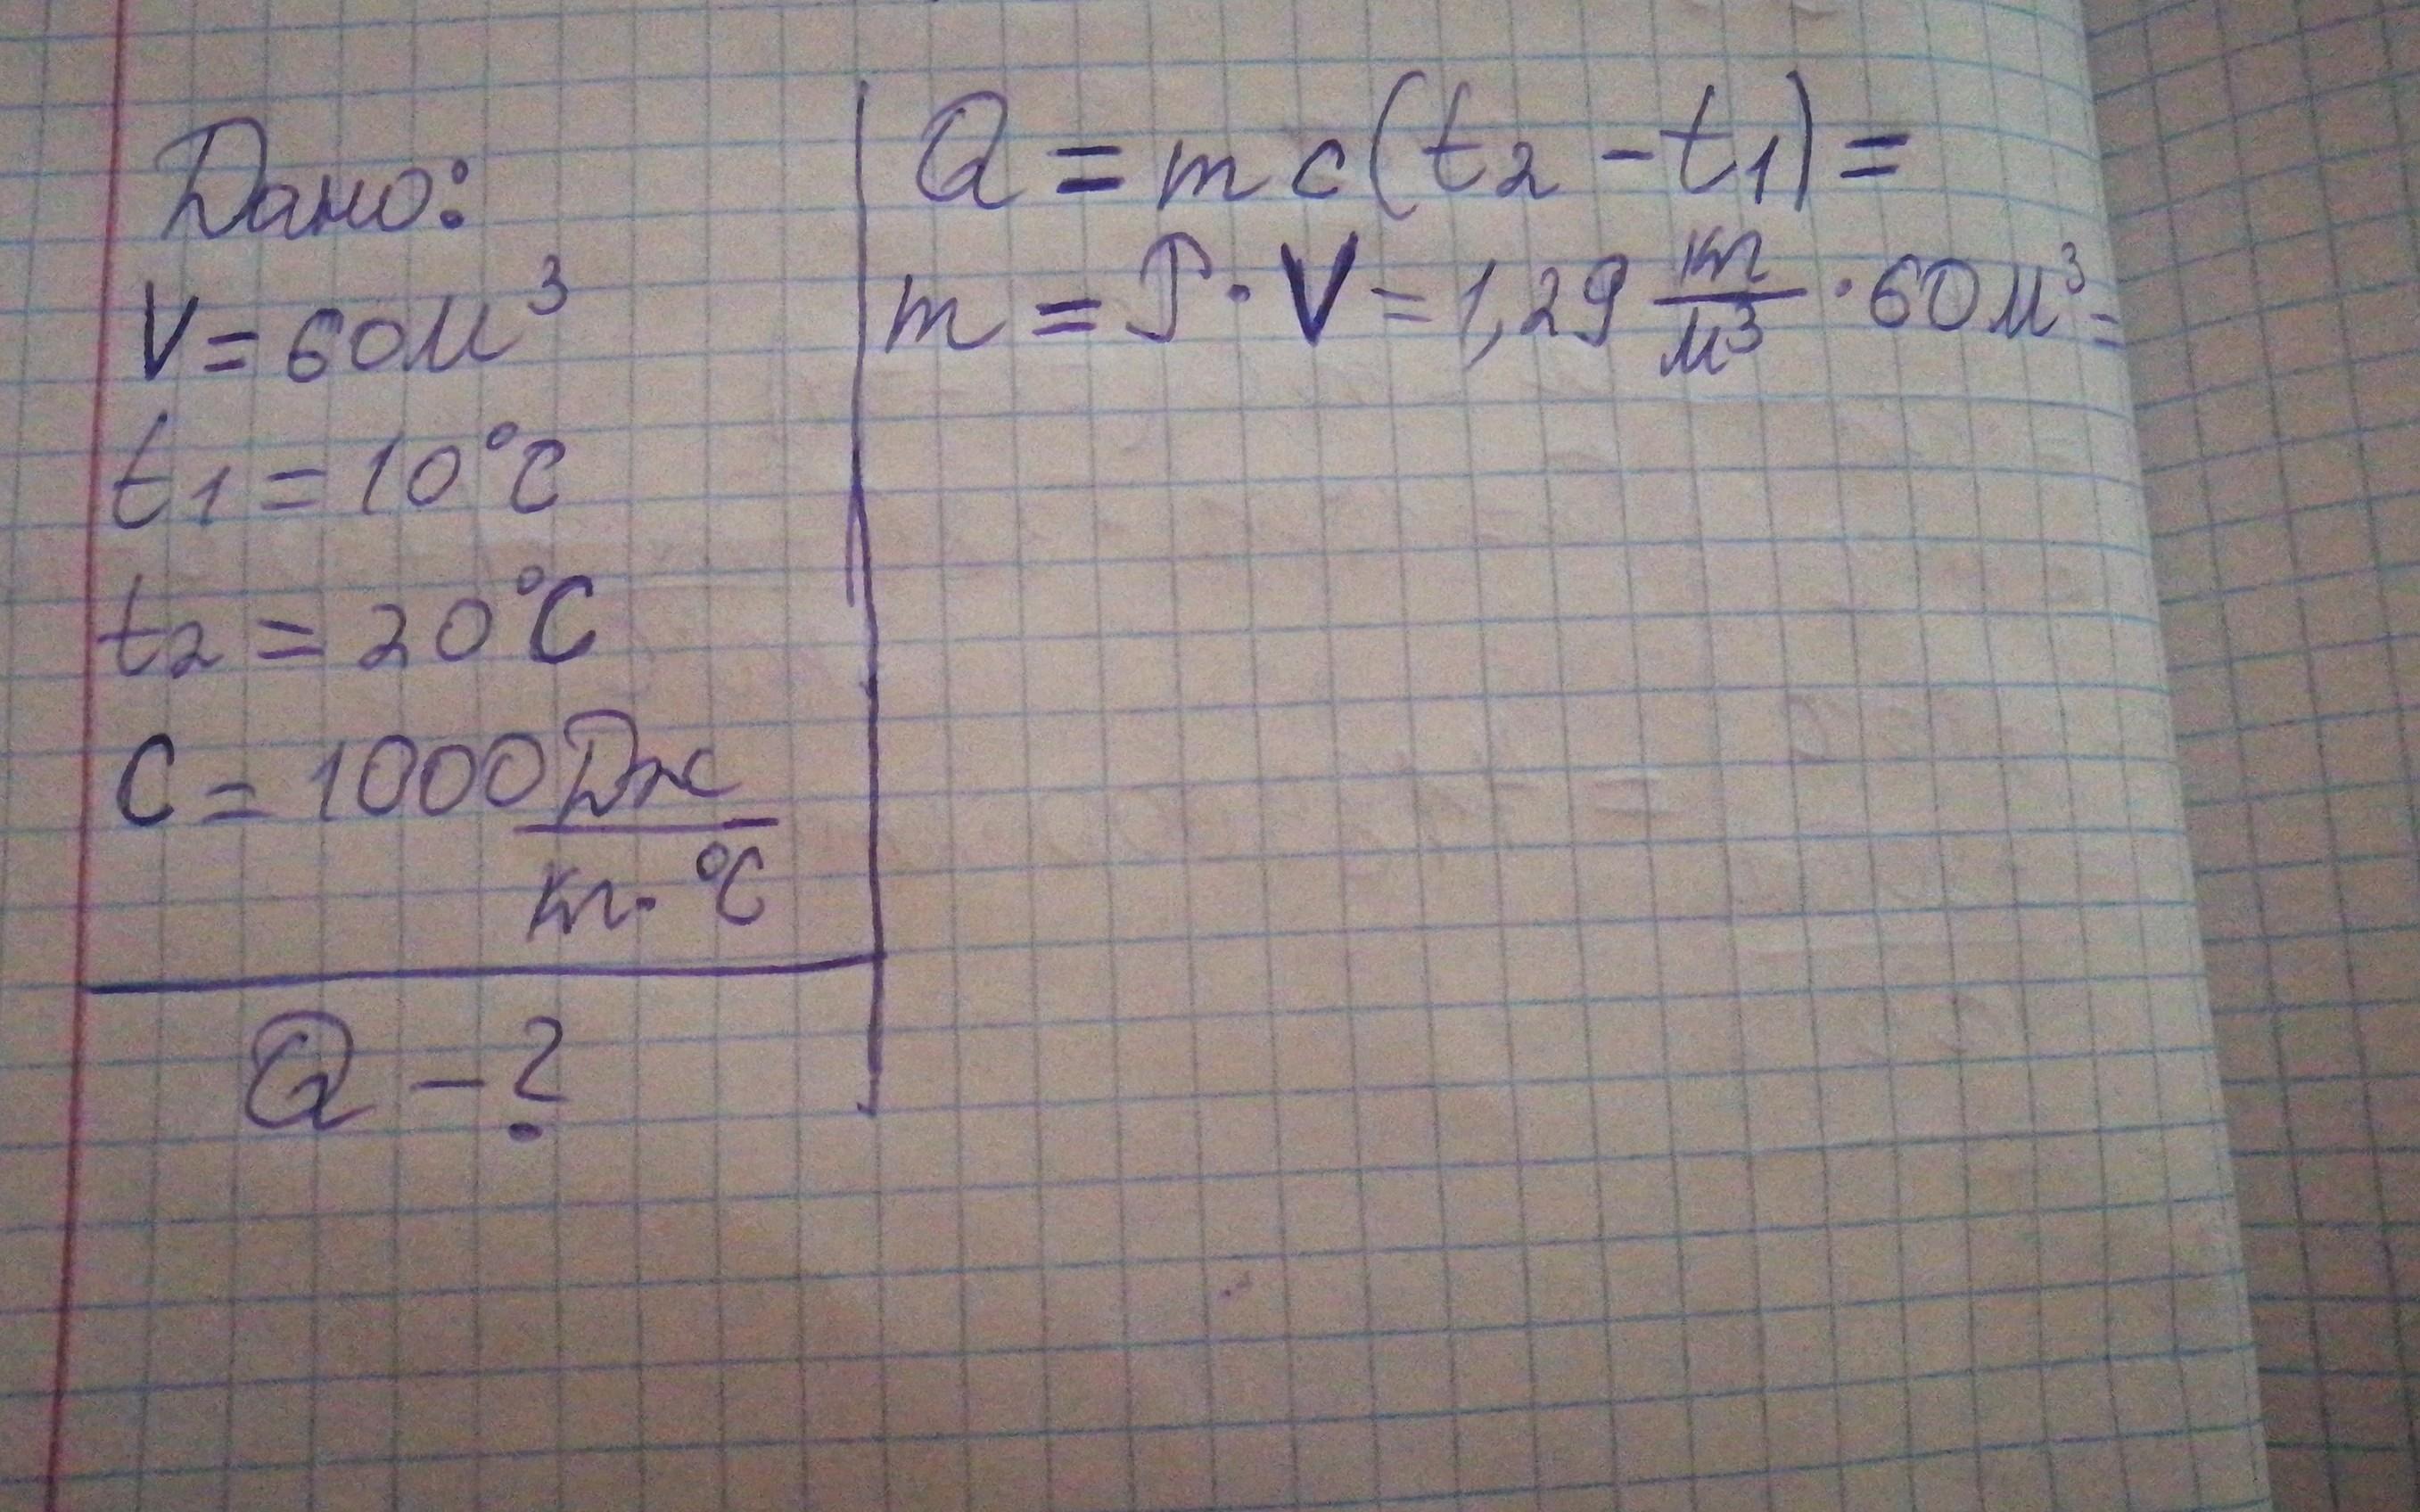 Дано:
V = 60 м³
t₁ = 10°C
t₂ = 20°C
C = 1000 Дж
кг · °C
Q – ?
Q = mc(t₂ – t₁) =
m = ρ · V = 1,29 кг/м³ · 60 м³ =